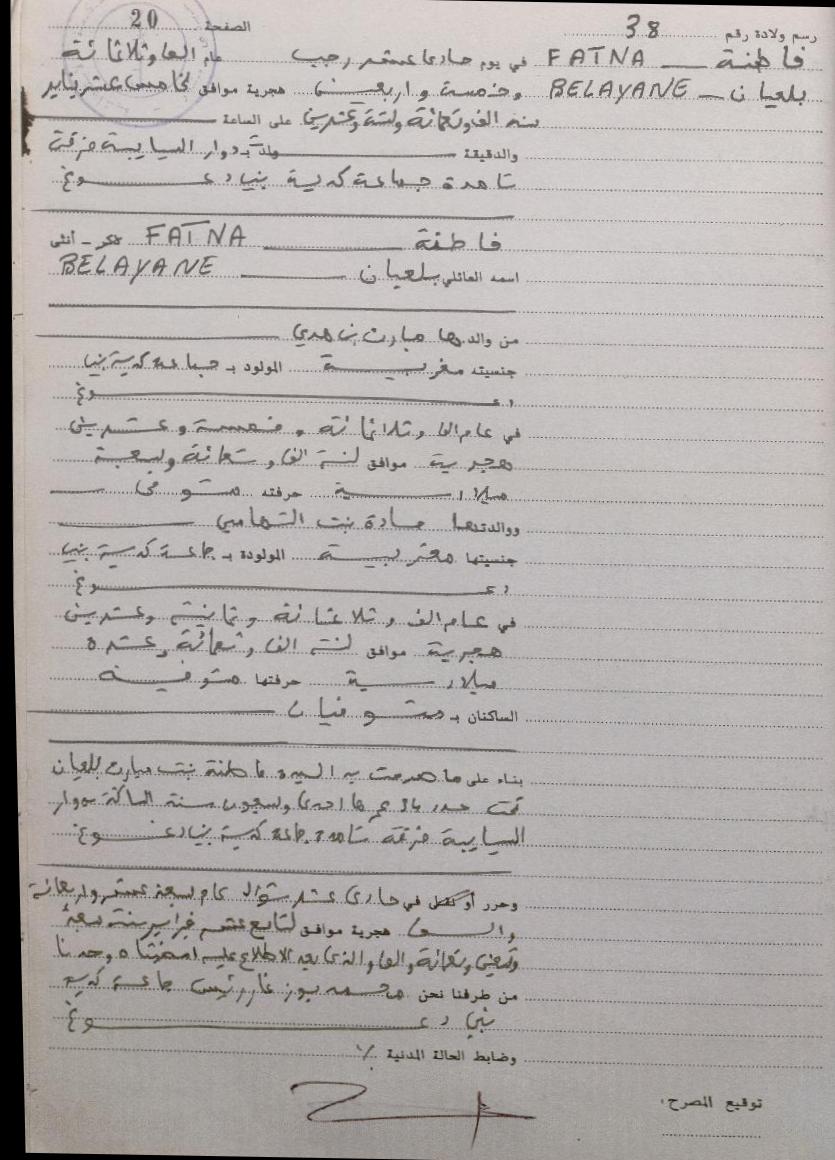 رسم ولادة رقم 38 الصفحة 20
فاطنة FATNA في يوم حادي عشر رجب عام الف وثلاثمائة
بلعيان BELAYANE وخمسة واربعين هجرية موافق لخامس عشر يناير
سنة الف وتسعمائة وستة وعشرين على الساعة
والدقيقة ولدت بدوار السايبة فرقة
شاهدة جماعة كدية بني دغوغ
فاطنة FATNA ذكر - أنثى
اسمه العائلي بلعيان BELAYANE
من والدها مبارك بن هدي
جنسيته مغربية المولود بـ جماعة كدية بني
دغوغ
في عام الف وثلاثمائة وخمسة وعشرين
هجرية موافق لسنة الف وتسعمائة وسبعة
ميلادية حرفته متوفى
ووالدتها حادة بنت التهامي
جنسيتها مغربية المولودة بـ جماعة كدية بني
دغوغ
في عام الف وثلاثمائة وثمانية وعشرين
هجرية موافق لسنة الف وتسعمائة وعشرة
ميلادية حرفتها متوفية
الساكنان بـ متوفيان
بناء على ما صرحت به السيدة فاطنة بنت مبارك بلعيان
تحت عدد 34 عمرها احدى وسبعون سنة الساكنة بدوار
السايبة فرقة شاهدة جماعة كدية بني دغوغ
وحرر أو نقل في حادي عشر شوال عام سبعة عشر واربعمائة
والف هجرية موافق لتاسع عشر فبراير سنة سبعة
وتسعين وتسعمائة والف والذي بعد الاطلاع عليه امضيناه وحدنا
من طرفنا نحن محمد رئيس جماعة كدية
بني دغوغ
وضابط الحالة المدنية ./.
توقيع المصرح: